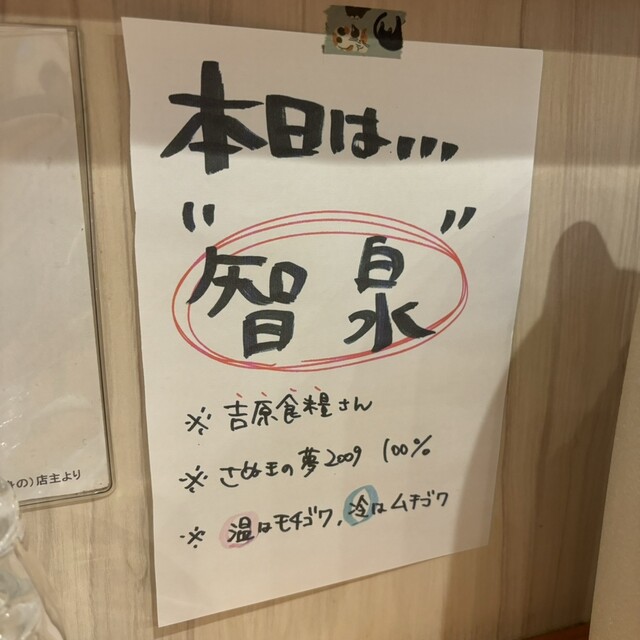 本日は、、、
"智泉"
※ 吉原食糧さん
※ さぬきの夢2009 100%
※ 温はモチゴワ、冷はムチゴワ
の)店主より